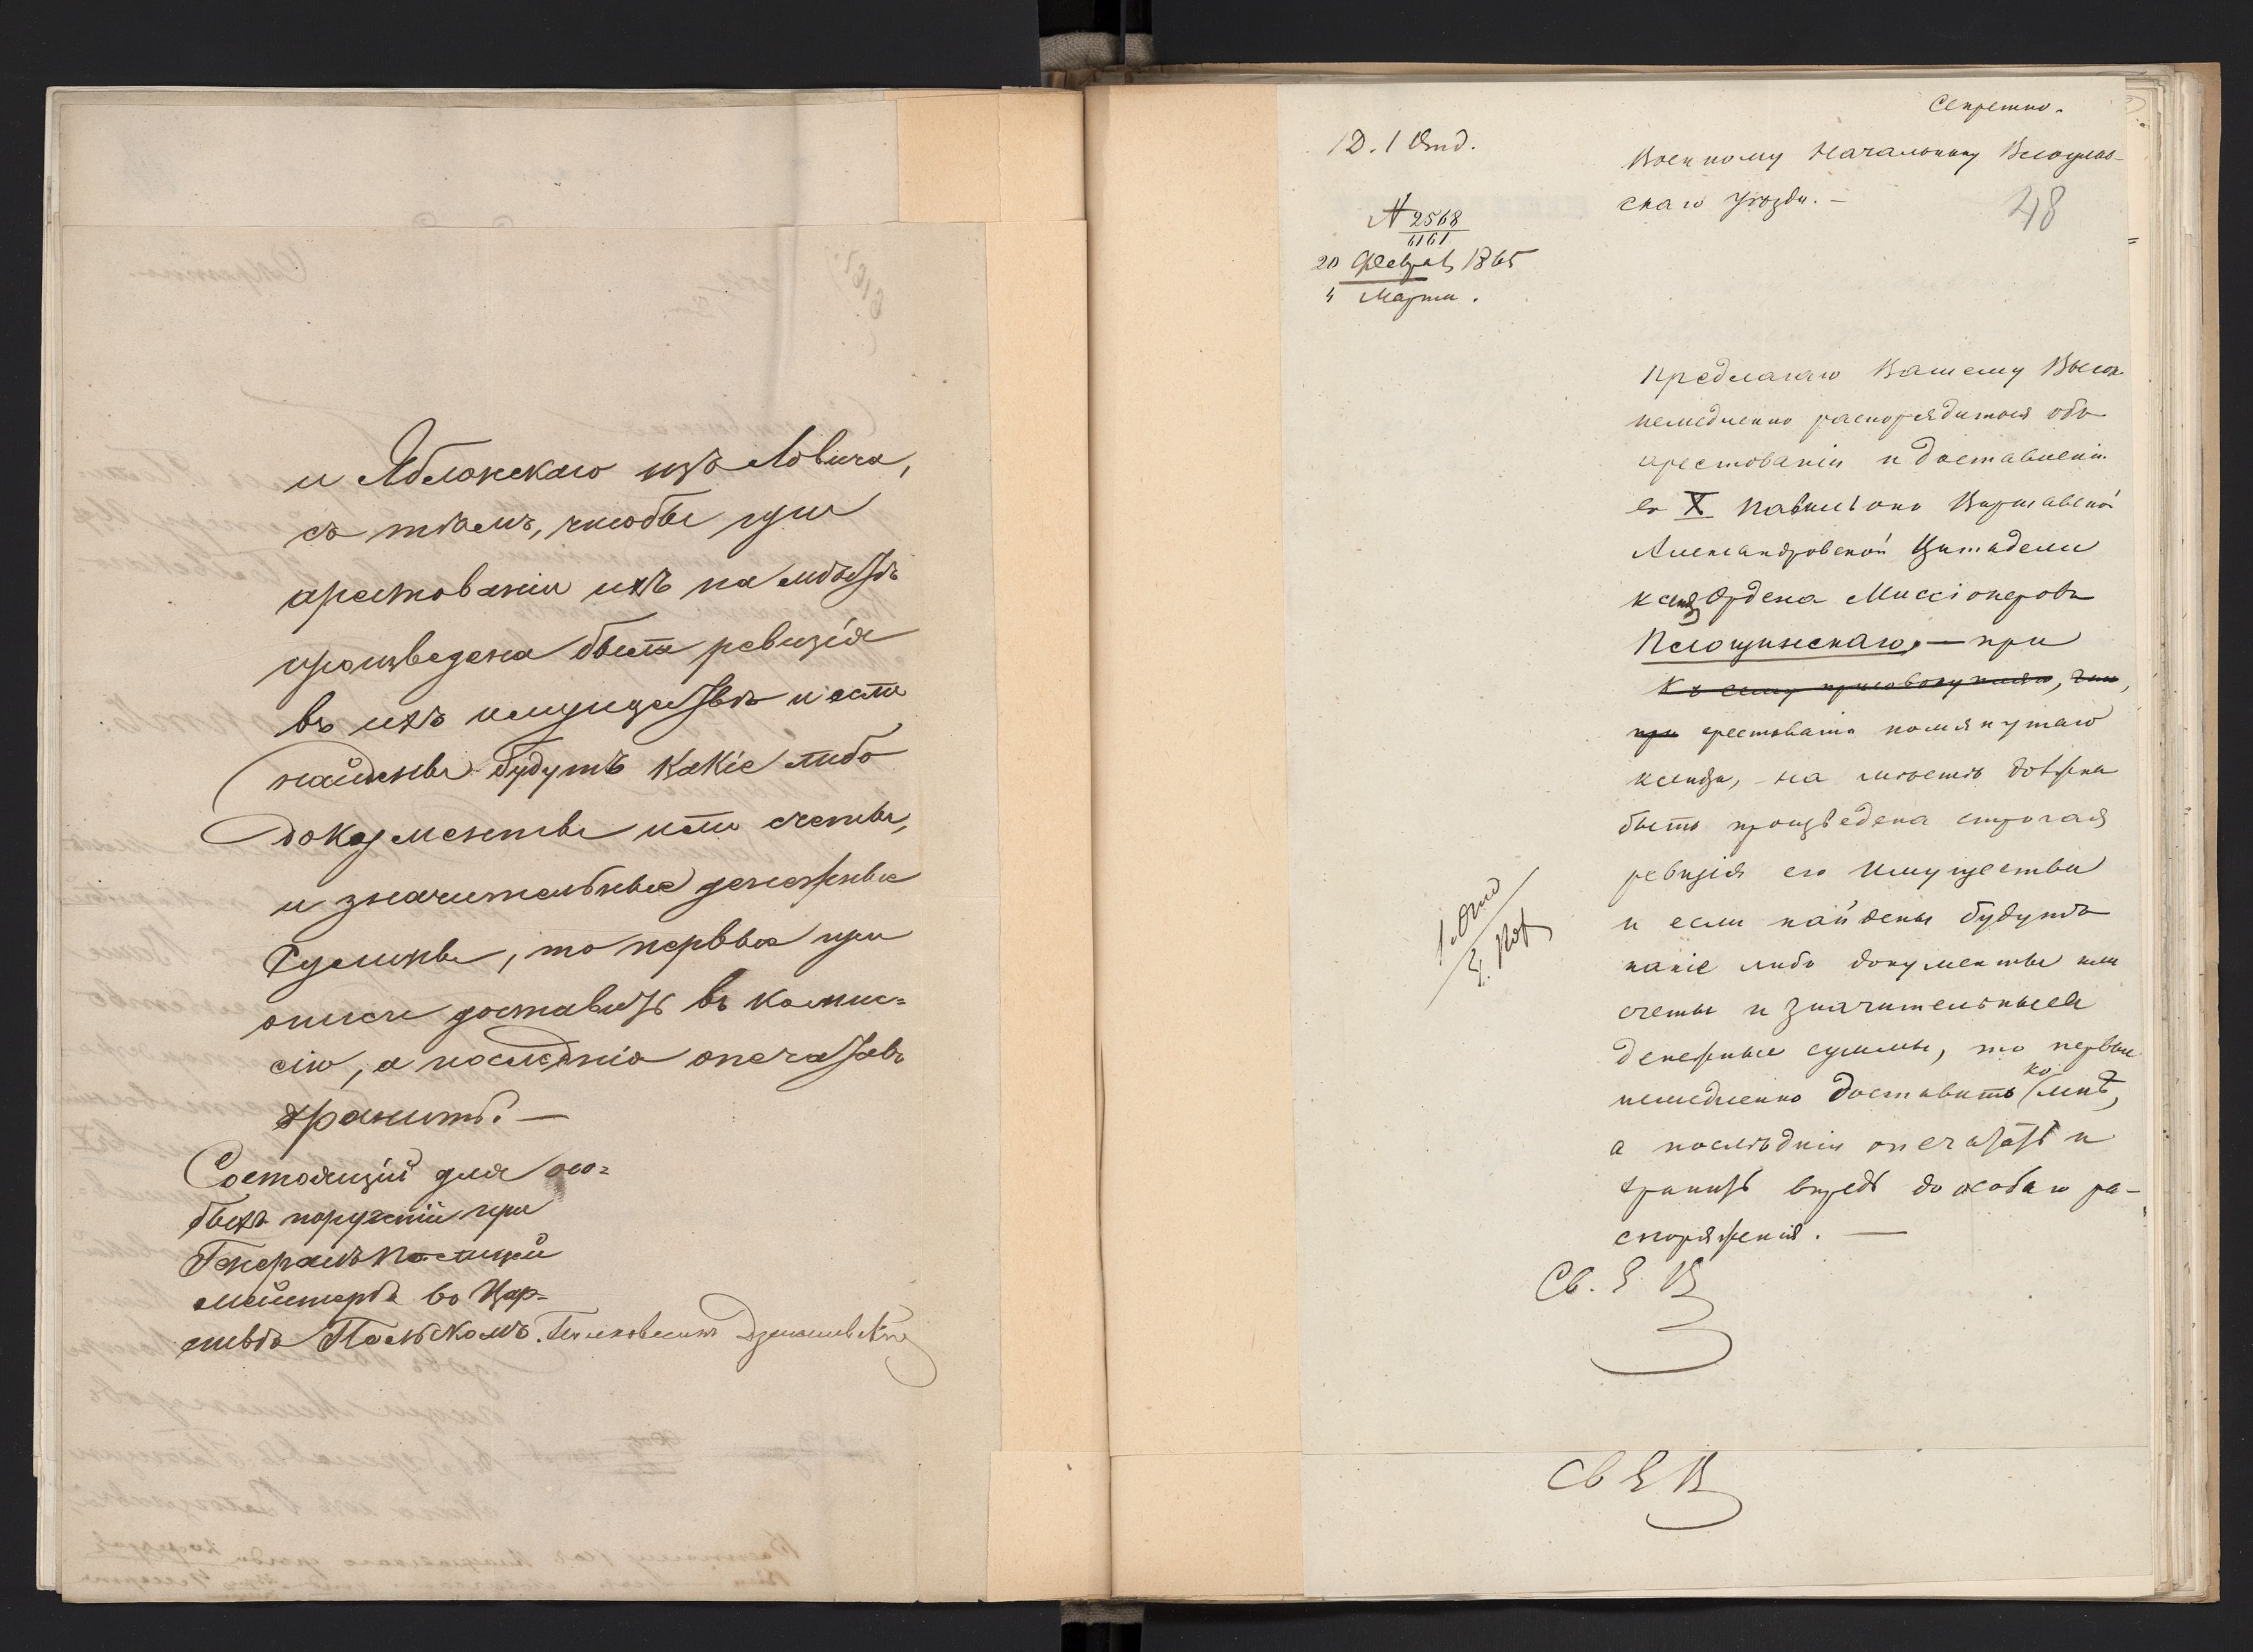 и Яблонскаго изъ Ловича,
съ тѣмъ, чтобы при
арестованіи ихъ на мѣстѣ
произведена была ревизія
въ ихъ имуществѣ и если
найдены будутъ какіе либо
документы или счеты,
и значительные денежные
суммы, то первые при
описи доставить въ комис=
сію, а послѣднія опечатавъ
хранить. —
Состоящій для осо=
быхъ порученій при
Генералъ Полицій
мейстерѣ въ Цар=
ствѣ Польскомъ.
Секретно.
1 Д. 1 Отд.
Военному Начальнику Влоцлав-
скаго Уѣзда. —
48
N 2568
6161
20 Февраля 1865
4 Марта.
Предлагаю Вашему Высок
немедленно распорядиться объ
арестованіи и доставленіи
въ X павильонъ Варшавской
Александровской Цитадели
ксендза Ордена Миссіонеровъ
— при
Къ сему присовокупляю, что,
при арестованіи помянутаго
ксендза, на мѣстѣ должна
быть произведена строгая
ревизія его имущества
и если найдены будутъ
какіе либо документы или
счеты и значительныя
денежные суммы, то первые
немедленно доставить ко мнѣ,
а послѣднія опечатать и
хранить впредь до особаго ра-
споряженія. —
1. Отд
Св. Е В
Св Е В